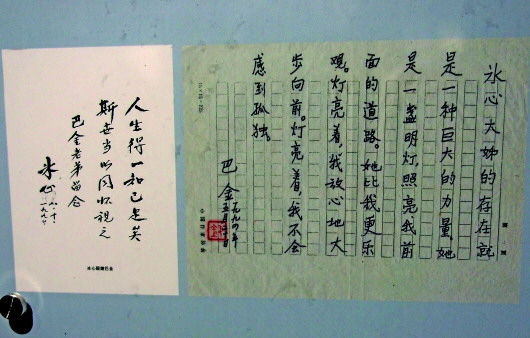 冰心大姊的存在就
是一种巨大的力量。她
是一盏明灯,照亮我前
面的道路。她比我更乐
观。灯亮着,我放心地大
步向前。灯亮着,我不会
感到孤独。
巴金
一九九四年
五月二十日
人生得一知己足矣
斯世当以同怀视之
巴金老弟留念
冰心
冰心题赠巴金